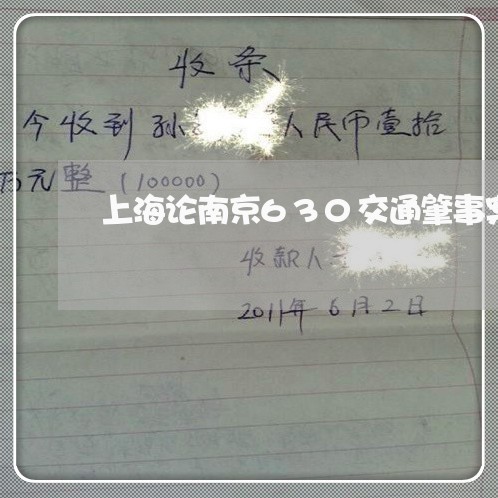 收条
今收到孙 人民币壹拾
万元整(100000)
上海论南京630交通肇事
收款人
2011年6月2日